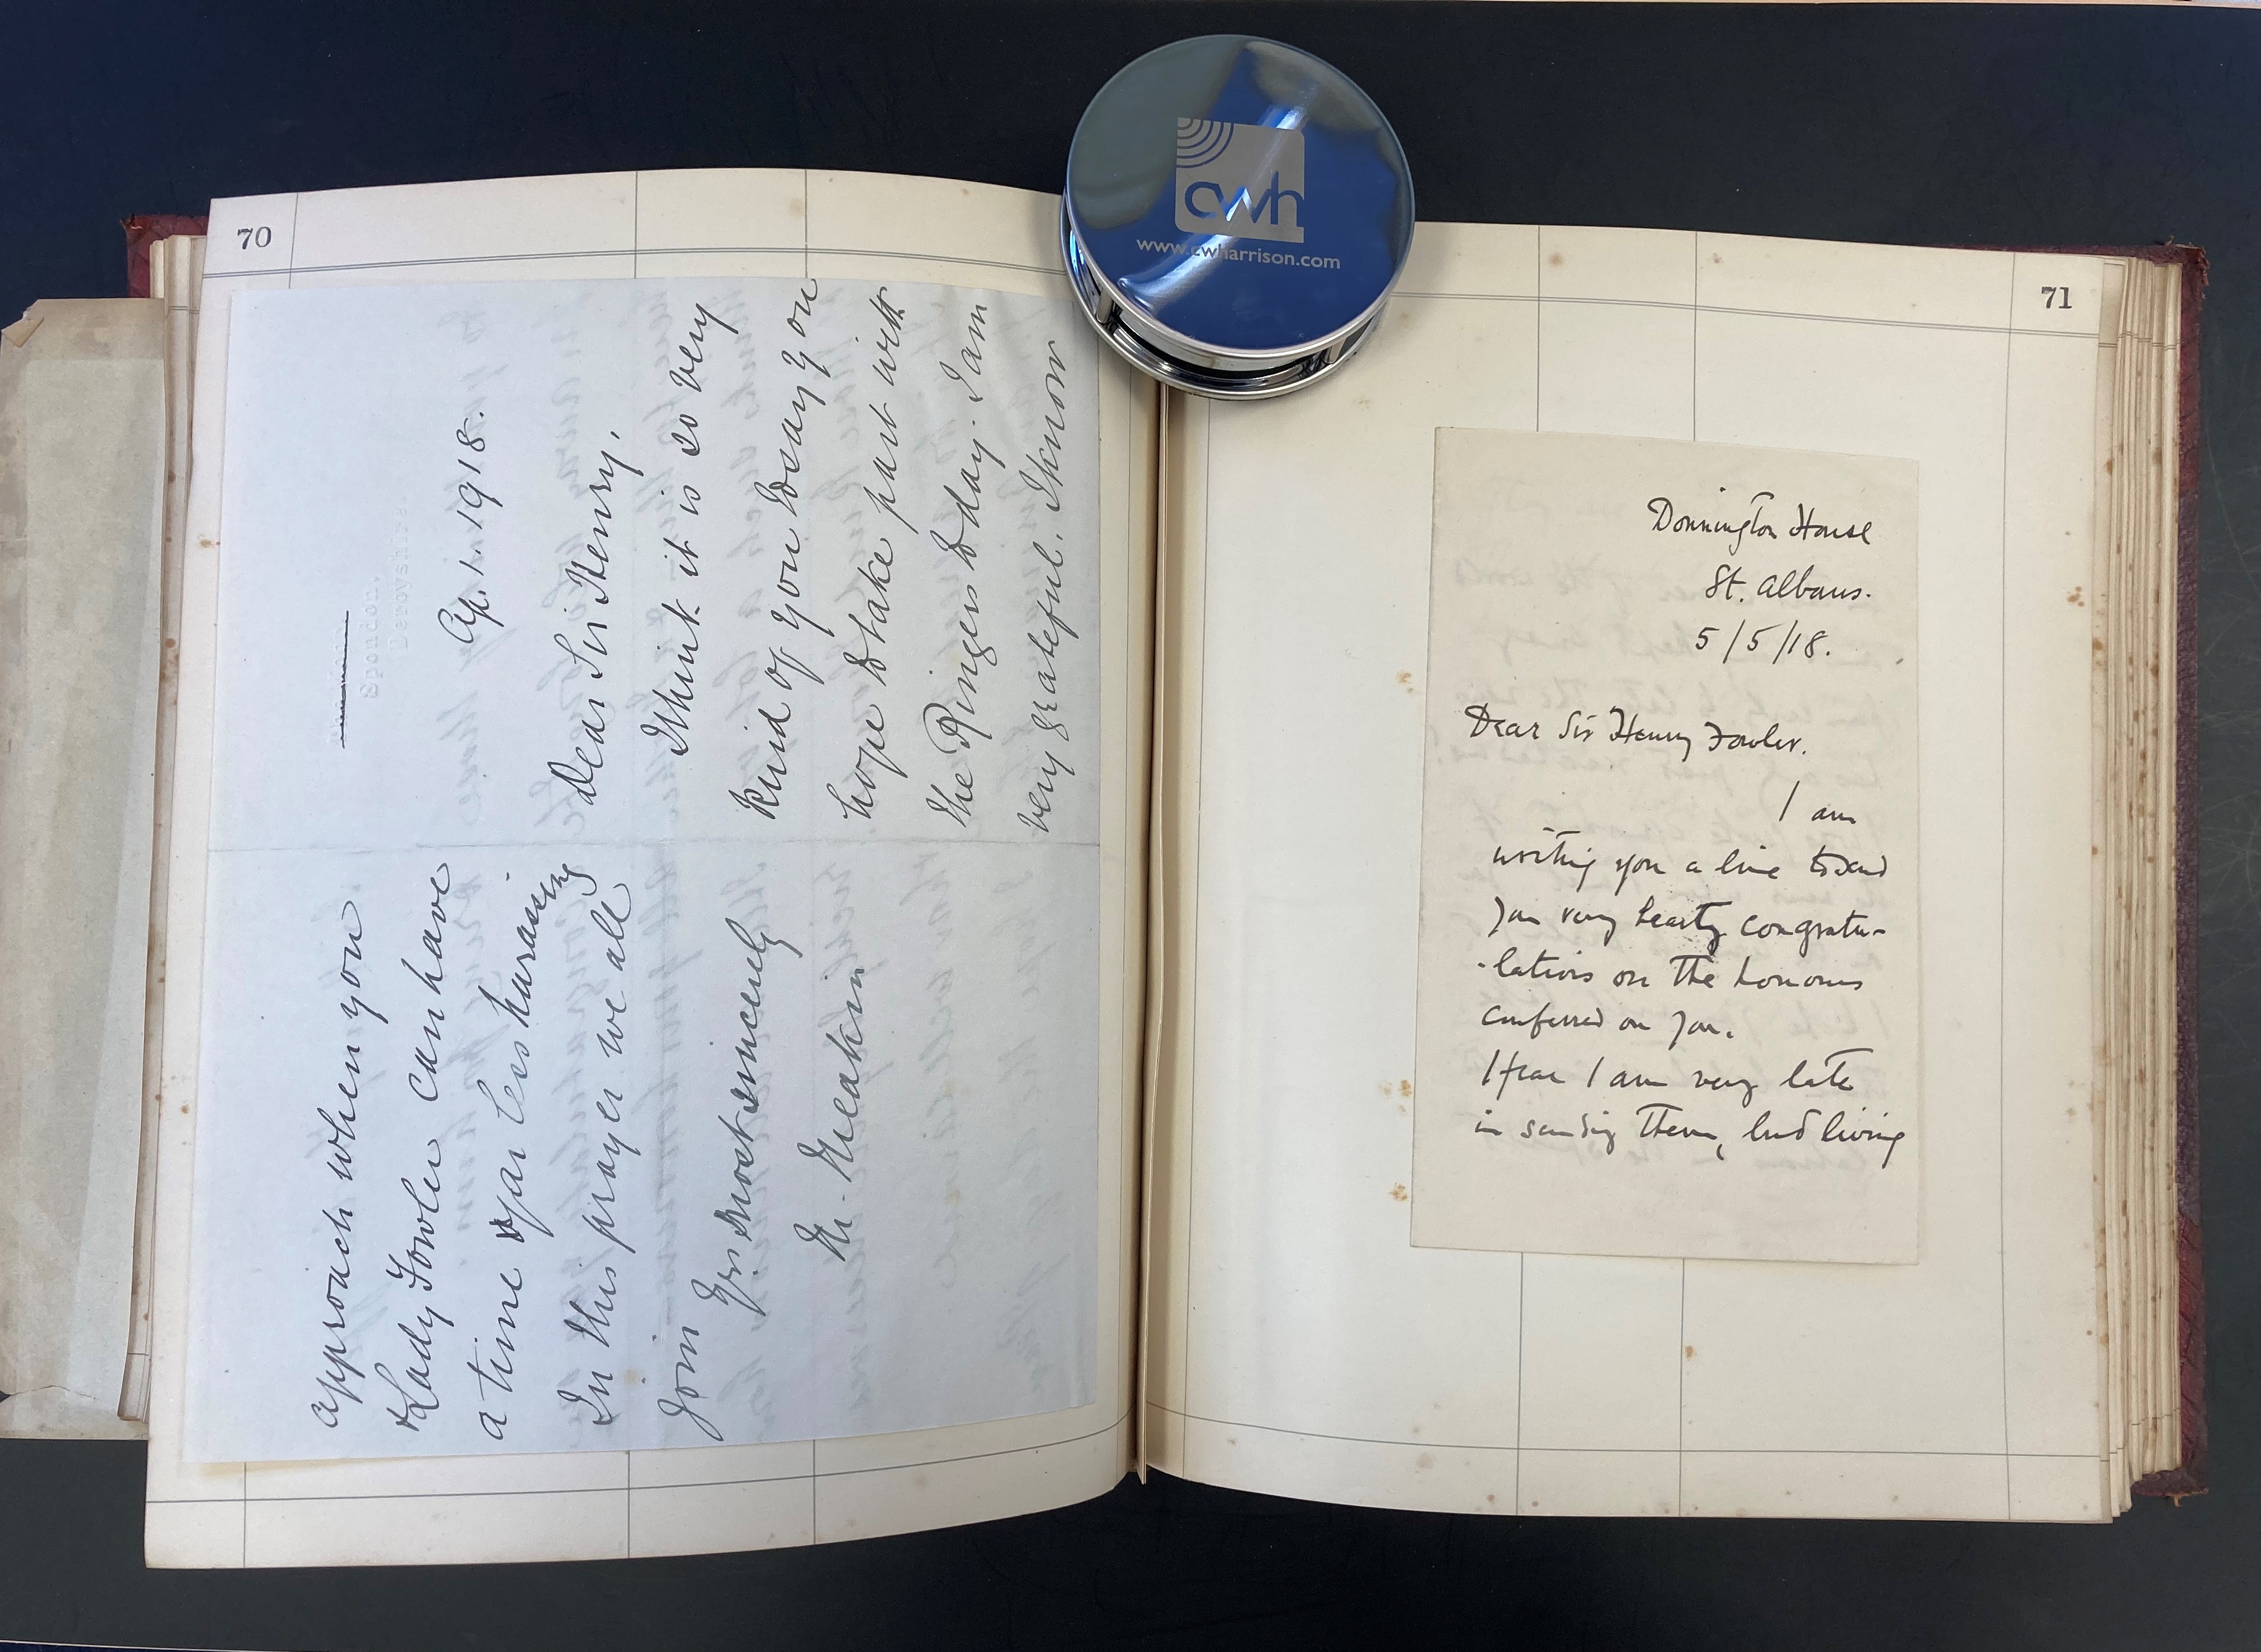 70
Spondon.
Derbyshire.
Ap. 1. 1918.
Dear Sir Henry,
I think it is so very
kind of you to say you
hope to take part with
the Ringers today. I am
very grateful. I know
approach when you
& Lady Fowler can have
a time of far less harassing
In this prayer we all
join
Yrs. most sincerely
M. Meakin
cwh
www.cwharrison.com
71
Donnington House
St. Albans.
5/5/18.
Dear Sir Henry Fowler.
I am
writing you a line to send
you very hearty congratu-
-lations on the honours
conferred on you.
I fear I am very late
in sending them, but living